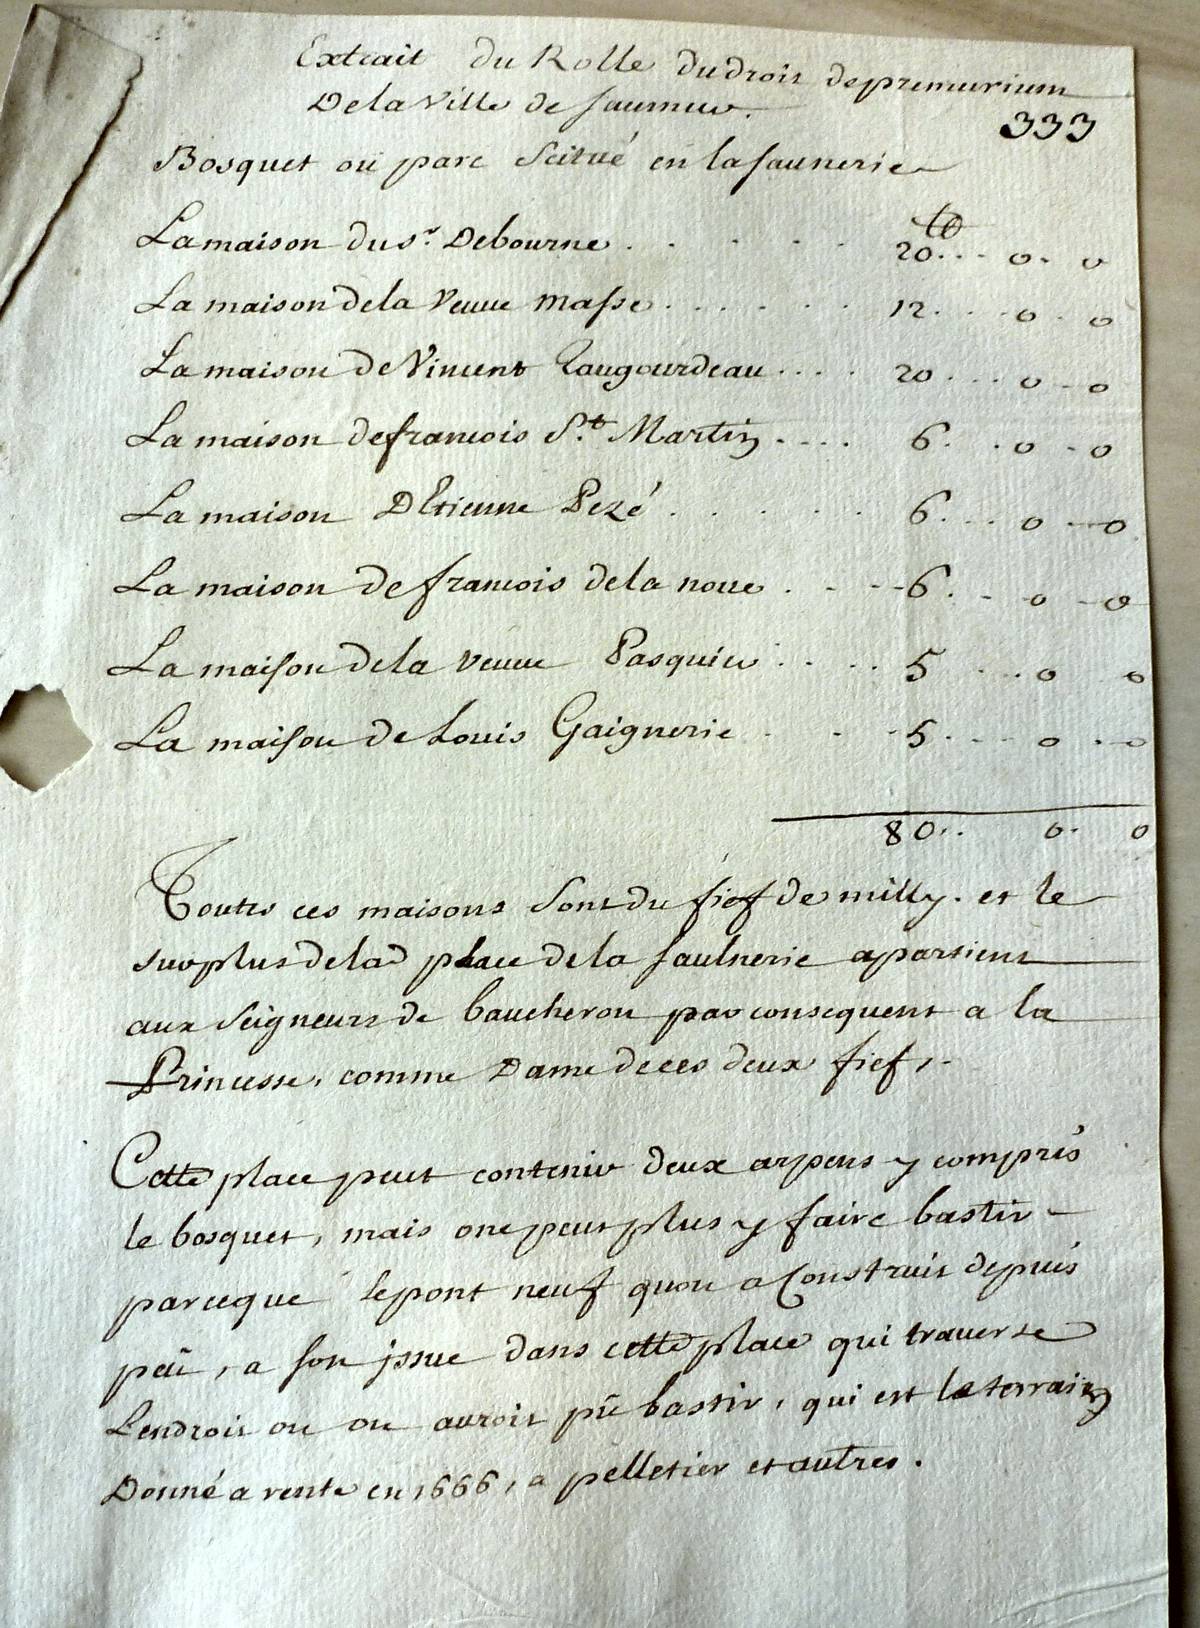 Extrait du Rolle du droit de premurium
De la Ville de saumur.
333
Bosquet ou parc Scitué en la saunerie
La maison du sr. Debourne . . . . . 20tt... 0. 0
La maison de la Veuue Masse . . . . . . 12. . . 0 . 0
La maison de Vincent Taugourdeau . . . . 20 . . . 0 - 0
La maison de francois St. Martin . . . . 6. . 0 - 0
La maison D'Etienne Pezé . . . . . . 6. . . 0 - 0
La maison de francois de la noue . - - - 6. - 0 - 0
La maison de la veuue Pasquier . . . . 5 . . . 0 0
La maison de Louis Gaignerie . . - 5. - - 0 . - 0
80.. 0. 0
Toutes ces maisons sont du fief de milly. et le
surplus de lad place de la saulnerie apartient
aux seigneurs de baucheron par consequent a la
Princesse, comme Dame de ces deux fiefs, -
Cette place peut contenir deux arpens y compris
le bosquet, mais on ne peut plus y faire bastir -
parceque le pont neuf quon a Construit depuis
peu, a son jssue dans cette place qui trauerse
L'endroit ou on auroit pû bastir, qui est le terrain
Donné a rente en 1666, a pelletier et autres.